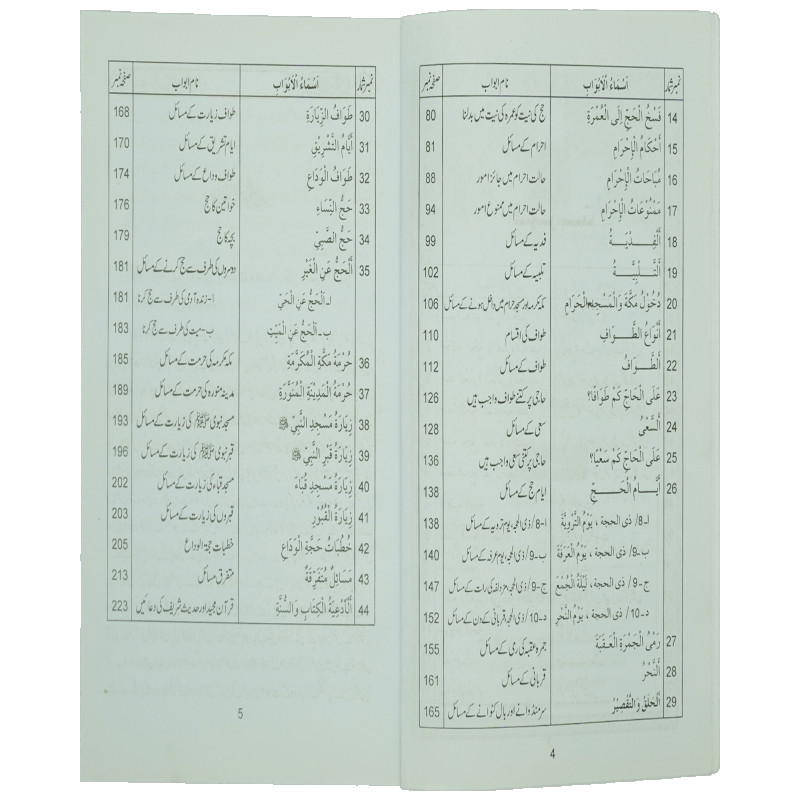 نمبر شمار اَسْمَاءُ الْاَبْوَابِ نام ابواب صفحہ نمبر
14 فَسْخُ الْحَجِّ اِلَى الْعُمْرَةِ حج کی نیت کو عمرہ کی نیت میں بدلنا 80
15 أَحْكَامُ الْإِحْرَامِ احرام کے مسائل 81
16 مُبَاحَاتُ الْإِحْرَامِ حالت احرام میں جائز امور 88
17 مَمْنُوْعَاتُ الْإِحْرَامِ حالت احرام میں ممنوع امور 94
18 اَلْفِدْيَةُ فدیہ کے مسائل 99
19 اَلتَّلْبِيَةُ تلبیہ کے مسائل 102
20 دُخُوْلُ مَكَّةَ وَالْمَسْجِدِ الْحَرَامِ مکہ مکرمہ اور مسجد حرام میں داخل ہونے کے مسائل 106
21 أَنْوَاعُ الطَّوَافِ طواف کی اقسام 110
22 اَلطَّوَافُ طواف کے مسائل 112
23 عَلَى الْحَاجِّ كَمْ طَوَافًا؟ حاجی پر کتنے طواف واجب ہیں 126
24 اَلسَّعْىُ سعی کے مسائل 128
25 عَلَى الْحَاجِّ كَمْ سَعْيًا؟ حاجی پر کتنی سعی واجب ہیں 136
26 أَيَّامُ الْحَجِّ ایام حج کے مسائل 138
ا-8/ ذى الحجة ، يَوْمُ التَّرْوِيَةِ ا-8/ ذی الحجہ، یوم ترویہ کے مسائل 138
ب-9/ ذى الحجة ، يَوْمُ الْعَرَفَةِ ب-9/ ذی الحجہ، یوم عرفہ کے مسائل 140
ج-9/ ذى الحجة ، لَيْلَةُ الْجُمَعِ ج-9/ ذی الحجہ، مزدلفہ کی رات کے مسائل 147
د-10/ ذى الحجة ، يَوْمُ النَّحْرِ د-10/ ذی الحجہ، قربانی کے دن کے مسائل 152
27 رَمْىُ الْجَمْرَةِ الْعَقَبَةِ جمرہ عقبہ کی رمی کے مسائل 155
28 اَلنَّحْرُ قربانی کے مسائل 161
29 اَلْحَلْقُ وَالتَّقْصِيْرُ سر منڈوانے اور بال کٹوانے کے مسائل 165
4
نمبر شمار اَسْمَاءُ الْاَبْوَابِ نام ابواب صفحہ نمبر
30 طَوَافُ الزِّيَارَةِ طواف زیارت کے مسائل 168
31 أَيَّامُ التَّشْرِيْقِ ایام تشریق کے مسائل 170
32 طَوَافُ الْوَدَاعِ طواف وداع کے مسائل 174
33 حَجُّ النِّسَاءِ خواتین کا حج 176
34 حَجُّ الصَّبِيِّ بچہ کا حج 179
35 اَلْحَجُّ عَنِ الْغَيْرِ دوسروں کی طرف سے حج کرنے کے مسائل 181
ا-اَلْحَجُّ عَنِ الْحَيِّ ا-زندہ آدمی کی طرف سے حج کرنا 181
ب-اَلْحَجُّ عَنِ الْمَيِّتِ ب-میت کی طرف سے حج کرنا 183
36 حُرْمَةُ مَكَّةِ الْمُكَرَّمَةِ مکہ مکرمہ کی حرمت کے مسائل 185
37 حُرْمَةُ الْمَدِيْنَةِ الْمُنَوَّرَةِ مدینہ منورہ کی حرمت کے مسائل 189
38 زِيَارَةُ مَسْجِدِ النَّبِيِّ ﷺ مسجد نبوی ﷺ کی زیارت کے مسائل 193
39 زِيَارَةُ قَبْرِ النَّبِيِّ ﷺ قبر نبوی ﷺ کی زیارت کے مسائل 196
40 زِيَارَةُ مَسْجِدِ قُبَاءَ مسجد قباء کی زیارت کے مسائل 202
41 زِيَارَةُ الْقُبُوْرِ قبروں کی زیارت کے مسائل 203
42 خُطُبَاتُ حَجَّةِ الْوَدَاعِ خطبات حجۃ الوداع 205
43 مَسَائِلُ مُتَفَرِّقَةٌ متفرق مسائل 213
44 اَلْأَدْعِيَةُ الْكِتَابِ وَالسُّنَّةِ قرآن مجید اور حدیث شریف کی دعائیں 223
5